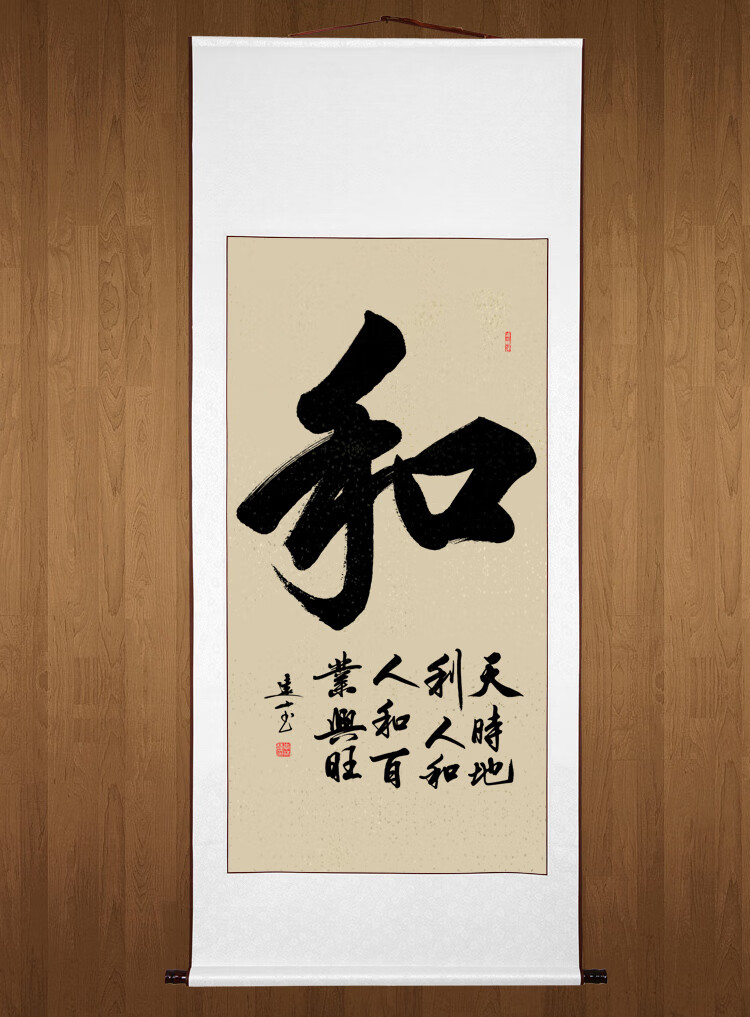 和
天時地
利人和
人和百
業興旺